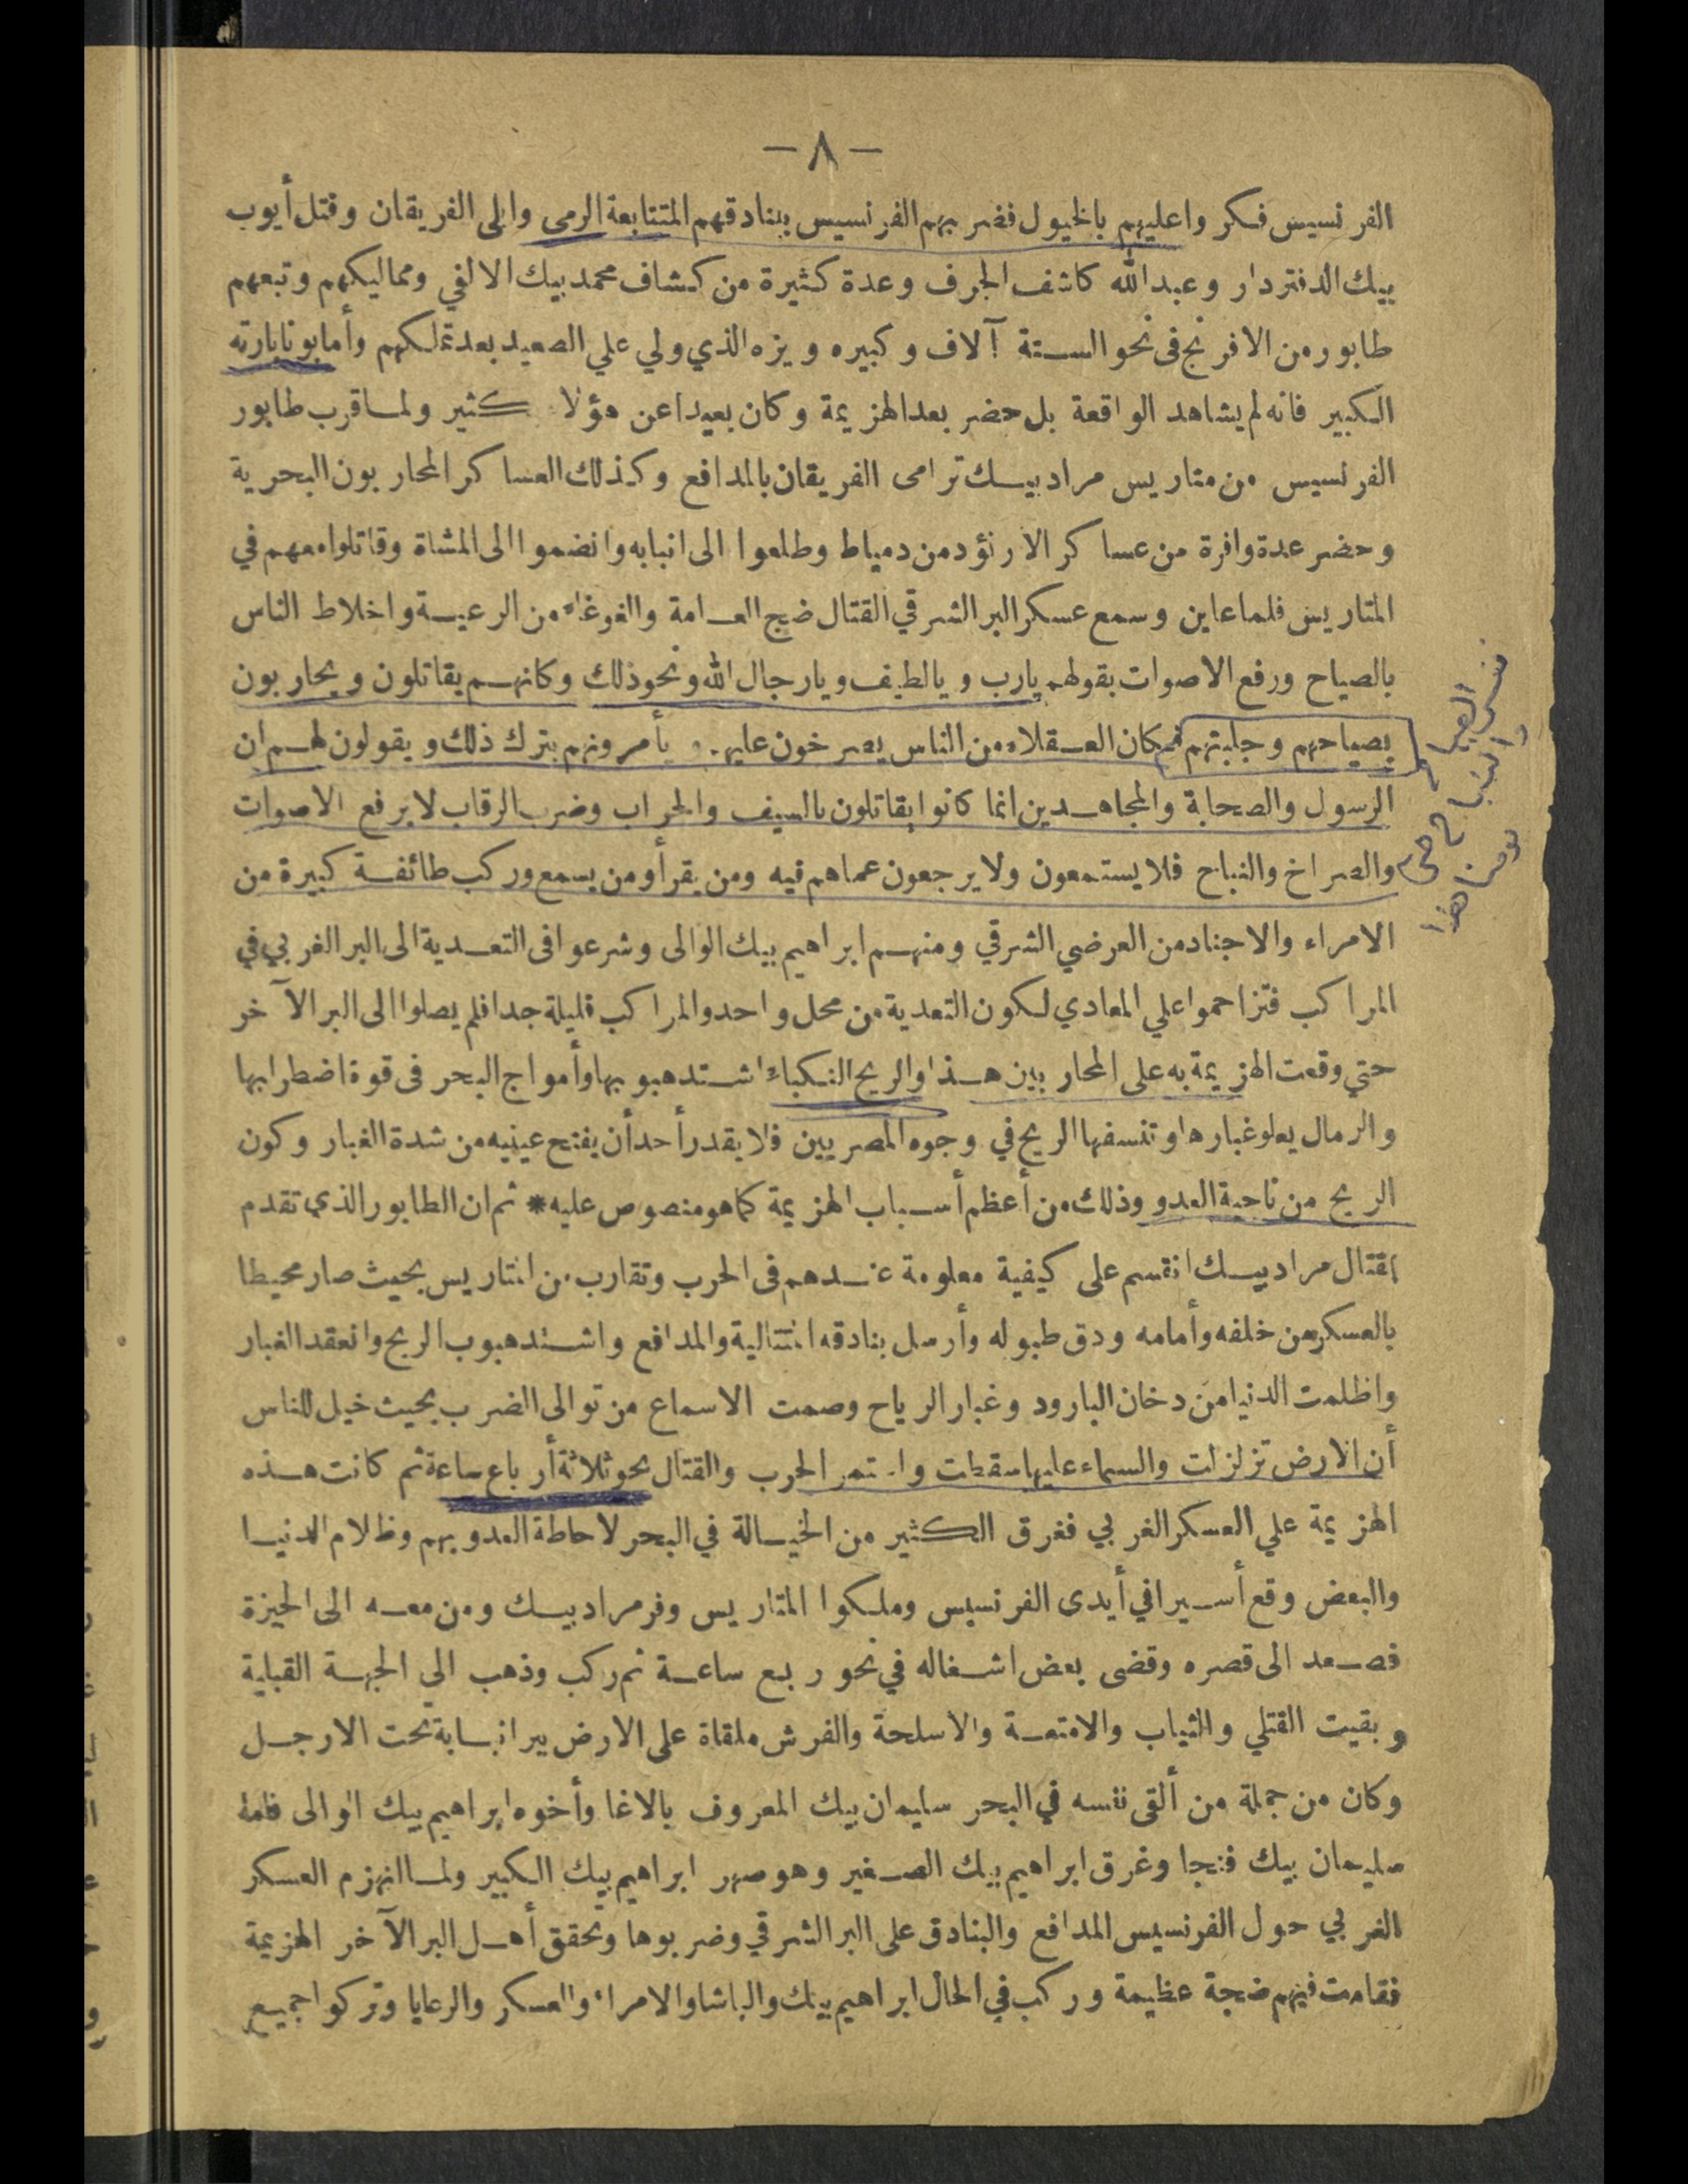 — ٨ —
الفرنسيس فكروا عليهم بالخيول فضربهم الفرنسيس ببنادقهم المتتابعة الرمى وابلى الفريقان وقتل أيوب
بيك الدفتردار وعبدالله كاشف الجرف وعدة كثيرة من كشاف محمد بيك الالفي ومماليكهم وتبعهم
طابور من الافرنج فى نحو الستة آلاف وكبيره ويزه الذي ولي علي الصعيد بعد تملكهم وأما بونابارته
الكبير فانه لم يشاهد الواقعة بل حضر بعد الهزيمة وكان بعيدا عن هؤلاء كثير ولما قرب طابور
الفرنسيس من متاريس مراد بيك ترامى الفريقان بالمدافع وكذلك العساكر المحاربون البحرية
وحضر عدة وافرة من عساكر الارنؤد من دمياط وطلعوا الى انبابه وانضموا الى المشاة وقاتلوا معهم في
المتاريس فلما عاين وسمع عسكر البر الشرقي القتال ضج العامة والغوغاء من الرعية واخلاط الناس
بالصياح ورفع الاصوات بقولهم يارب ويالطيف ويارجال الله ونحو ذلك وكانهم يقاتلون ويحاربون
بصياحهم وجلبتهم فكان العقلاء من الناس يصرخون عليهم ويأمرونهم بترك ذلك ويقولون لهم ان
الرسول والصحابة والمجاهدين انما كانوا يقاتلون بالسيف والحراب وضرب الرقاب لا برفع الاصوات
والصراخ والنباح فلا يستمعون ولا يرجعون عماهم فيه ومن يقرأ ومن يسمع وركب طائفة كبيرة من
الامراء والاجناد من العرضي الشرقي ومنهم ابراهيم بيك الوالى وشرعوا فى التعدية الى البر الغربي في
المراكب فتزاحموا علي المعادي لكون التعدية من محل واحد والمراكب قليلة جدا فلم يصلوا الى البر الآخر
حتي وقعت الهزيمة به على المحاربين هذا والريح النكباء اشتد هبوبها وأمواج البحر فى قوة اضطرابها
والرمال يعلو غبارها وتنسفها الريح في وجوه المصريين فلا يقدر أحد أن يفتح عينيه من شدة الغبار وكون
الريح من ناحية العدو وذلك من أعظم أسباب الهزيمة كما هو منصوص عليه * ثم ان الطابور الذي تقدم
لقتال مراد بيك انقسم على كيفية معلومة عندهم فى الحرب وتقارب من المتاريس بحيث صار محيطا
بالعسكر من خلفه وأمامه ودق طبوله وأرسل بنادقه المتتالية والمدافع واشتد هبوب الريح وانعقد الغبار
واظلمت الدنيا من دخان البارود وغبار الرياح وصمت الاسماع من توالى الضرب بحيث خيل للناس
أن الارض تزلزلت والسماء عليها سقطت واستمر الحرب والقتال نحو ثلاثة أرباع ساعة ثم كانت هذه
الهزيمة علي العسكر الغربي فغرق الكثير من الخيالة في البحر لاحاطة العدو بهم وظلام الدنيا
والبعض وقع أسيرا في أيدى الفرنسيس وملكوا المتاريس وفر مراد بيك ومن معه الى الجيزة
فصعد الى قصره وقضى بعض اشغاله في نحو ربع ساعة ثم ركب وذهب الي الجهة القبلية
وبقيت القتلي والثياب والامتعة والاسلحة والفرش ملقاة على الارض ببر انبابة تحت الارجل
وكان من جملة من ألقى نفسه في البحر سليمان بيك المعروف بالاغا وأخوه ابراهيم بيك الوالى فاما
سليمان بيك فنجا وغرق ابراهيم بيك الصغير وهو صهر ابراهيم بيك الكبير ولما انهزم العسكر
الغربي حول الفرنسيس المدافع والبنادق على البر الشرقي وضربوها وتحقق أهل البر الآخر الهزيمة
فقامت فيهم ضجة عظيمة وركب في الحال ابراهيم بيك والباشا والامراء والعسكر والرعايا وتركوا جميع